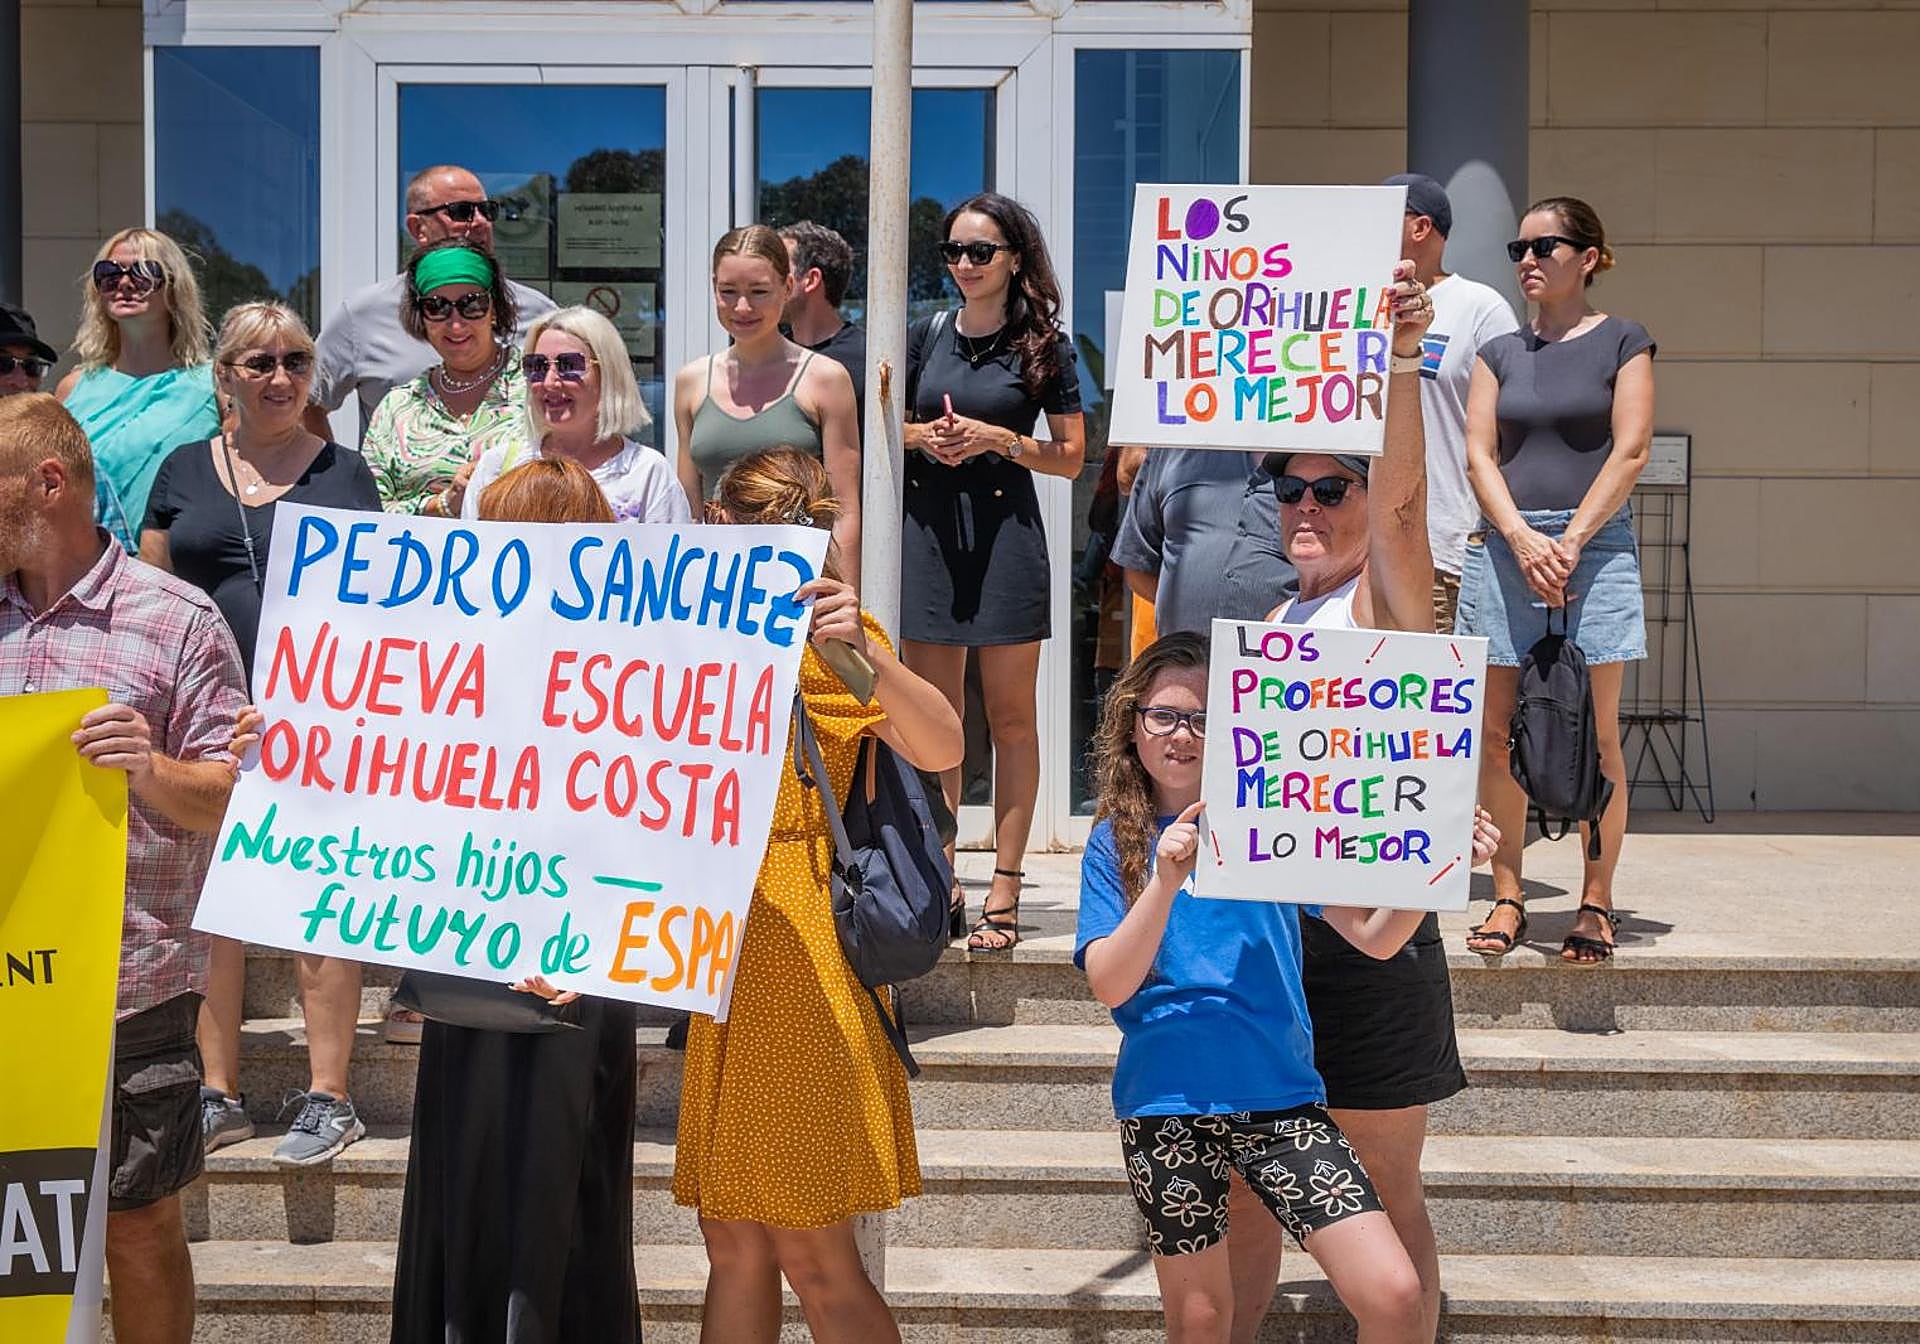 LOS
NIÑOS
DE ORIHUELA
MERECER
LO MEJOR
PEDRO SANCHEZ
NUEVA ESCUELA
ORIHUELA COSTA
Nuestros hijos —
futuro de ESPA
LOS
PROFESORES
DE ORIHUELA
MERECER
LO MEJOR
ENT
AT